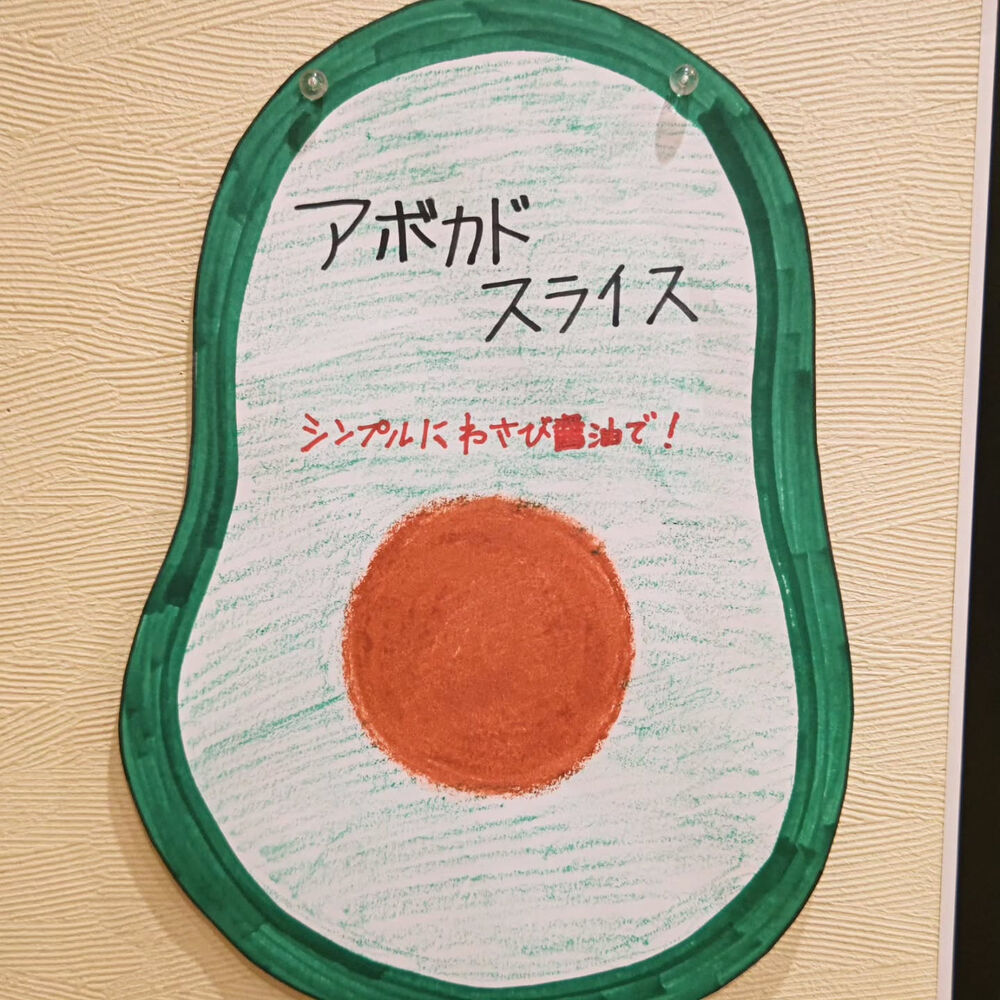 アボカド
スライス
シンプルにわさび醤油で!